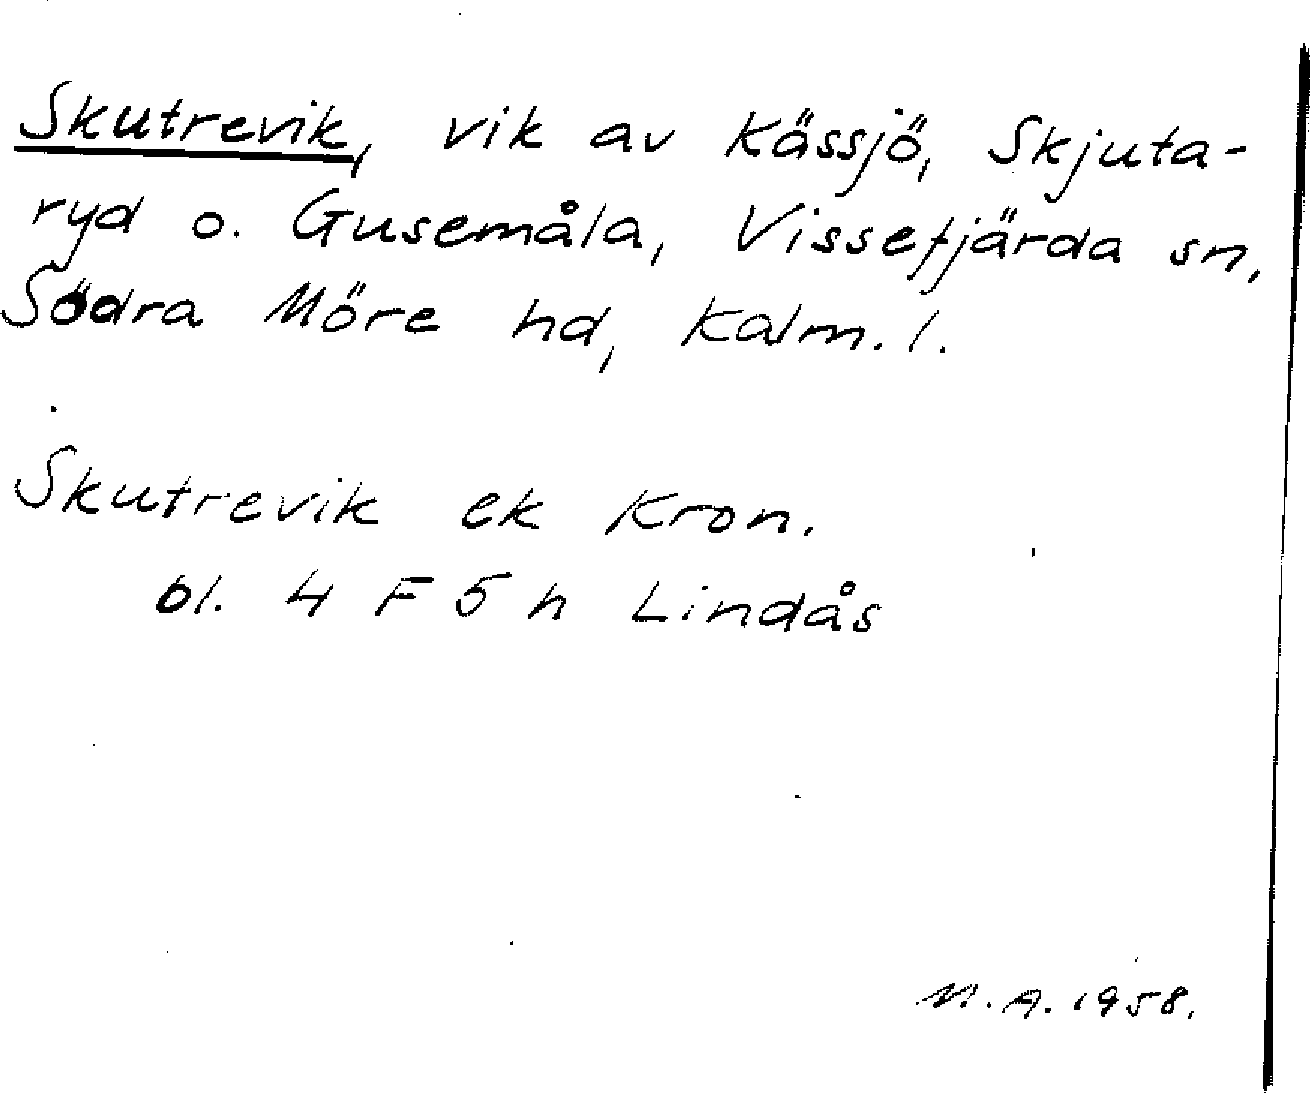 Skutrevik, vik av Kässjö, Skjuta-
ryd o. Gusemåla, Vissefjärda sn,
Södra Möre hd, Kalm. l.
Skutrevik ek Kron.
bl. 4 F 5 h Lindås
M. A. 1958.